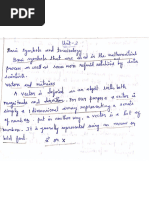 Unit-2
Basic symbols and terminology
Basic symbols that are used in the mathematical
process as well as some more refined notations by data
scientists.
vectors and matrices
A vector is defined as an object with both
magnitude and direction. For our purpose a vector is
simply a 1 dimensional array representing a series
of numbers. put in another way, a vector is a list of
numbers. It is generally represented using an arrow or
bold font
x or x